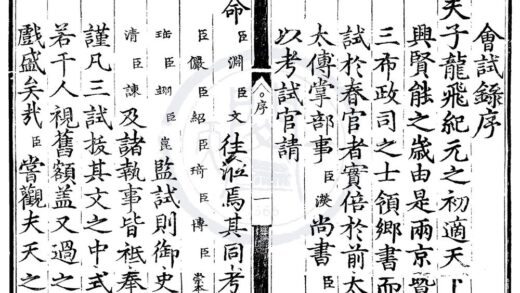 會試錄序
天子龍飛紀元之初適天下
興賢能之歲由是兩京暨
三布政司之士領鄉書而
試於春官者實倍於前太
太傅掌部事臣濙尚書臣
以考試官請
序
一
命臣淵臣文往涖焉其同考
臣儼臣紹臣琦臣博臣
臣翊臣崑監試則御史
清臣諫及諸執事皆祗奉
謹凡三試拔其文之中式
若干人視舊額蓋又過之
戲盛矣哉臣嘗觀夫天之